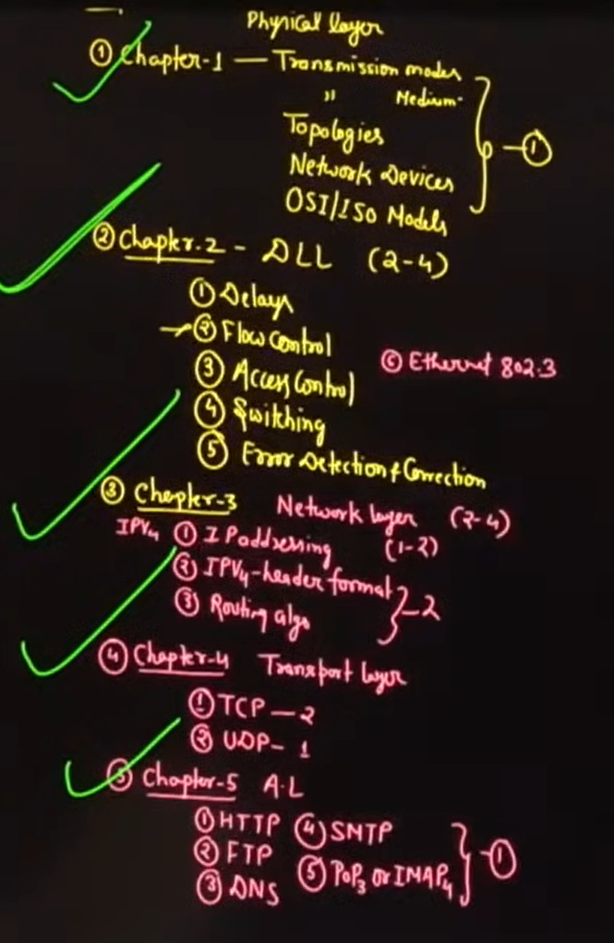 Physical layer
① Chapter-1 — Transmission modes
" Medium
Topologies
Network Devices
OSI/ISO Models
—①
② Chapter-2 - DLL (2-4)
① Delays
② Flow Control
⑥ Ethernet 802.3
③ Access Control
④ Switching
⑤ Error Detection & Correction
③ Chapter-3 Network layer (2-4)
IPV4 ① IPaddressing (1-2)
② IPV4-header format
③ Routing algo
—2
④ Chapter-4 Transport layer
① TCP — 2
② UDP - 1
⑤ Chapter-5 A.L
① HTTP ④ SMTP
② FTP ⑤ PoP3 or IMAP4
③ DNS
-①